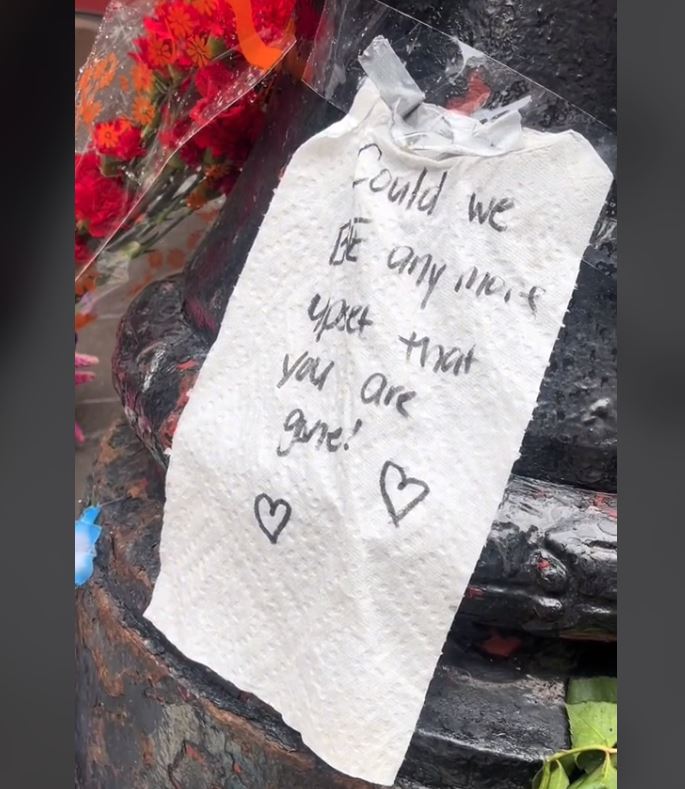 Could we
BE any more
upset that
you are
gone!